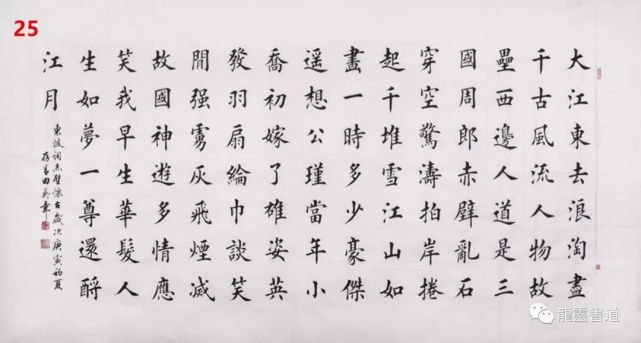 25
大江東去浪淘盡
千古風流人物故
壘西邊人道是三
國周郎赤壁亂石
穿空驚濤拍岸捲
起千堆雪江山如
畫一時多少豪傑
遥想公瑾當年小
喬初嫁了雄姿英
發羽扇綸巾談笑
閒强虜灰飛煙滅
故國神遊多情應
笑我早生華髮人
生如夢一尊還酹
江月
東坡詞赤壁懷古歲次庚寅初夏
田英章
龍靈書道